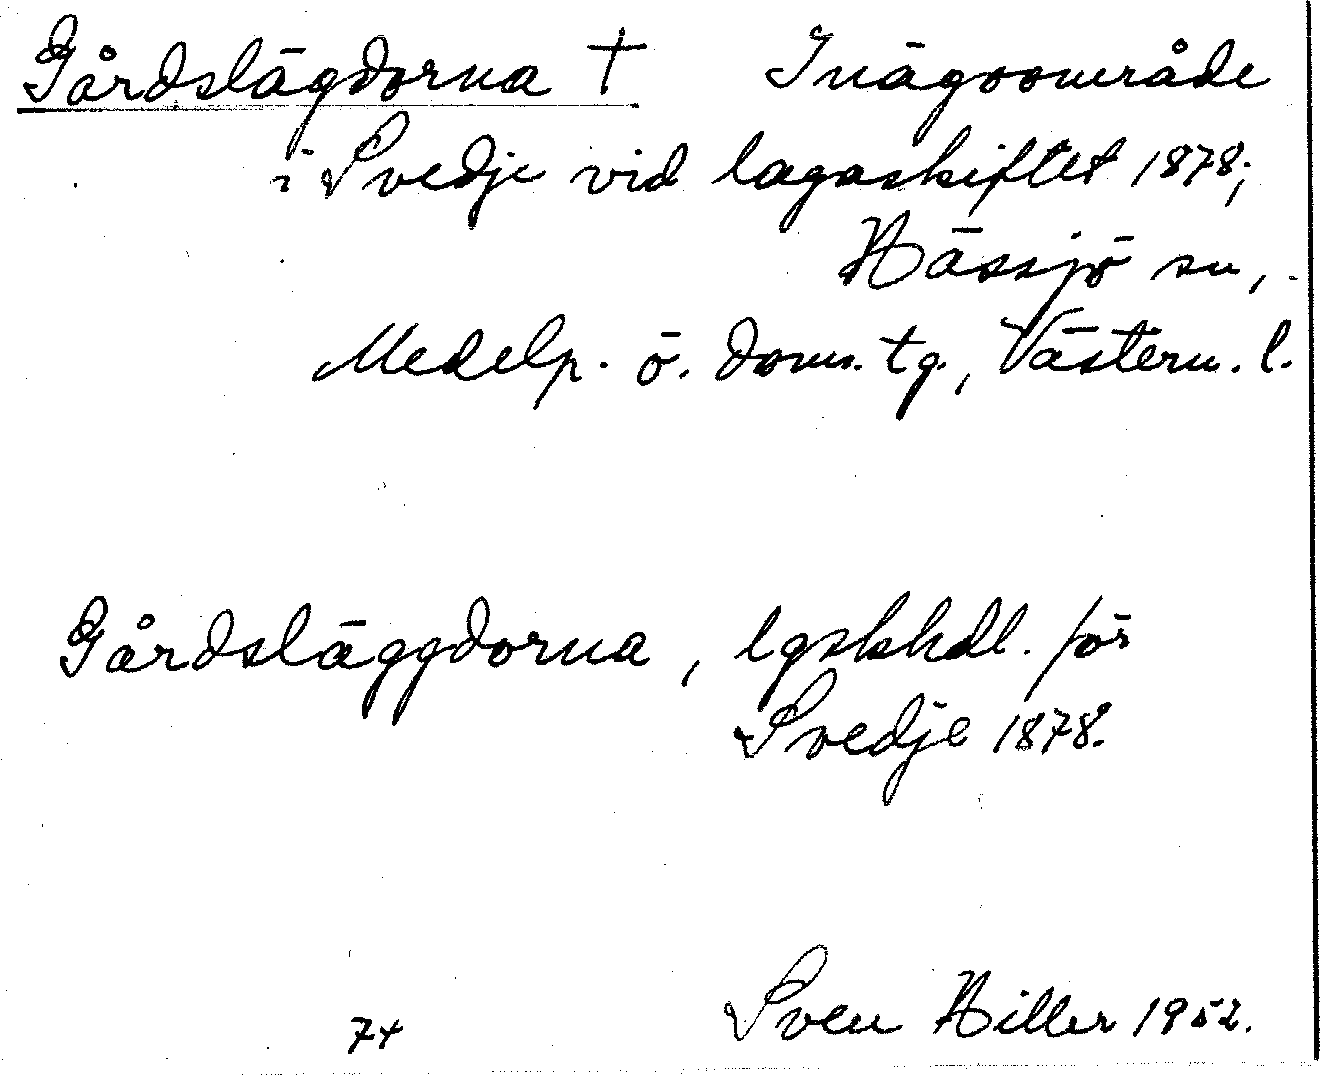 Gårdslägdorna † Inägoområde
i Svedje vid lagaskiftet 1878;
Hässjö sn,
Medelp. ö. doms. tg, Västern. l.
Gårdsläggdorna, lgskhdl. för
Svedje 1878.
Sven Hiller 1952.
74